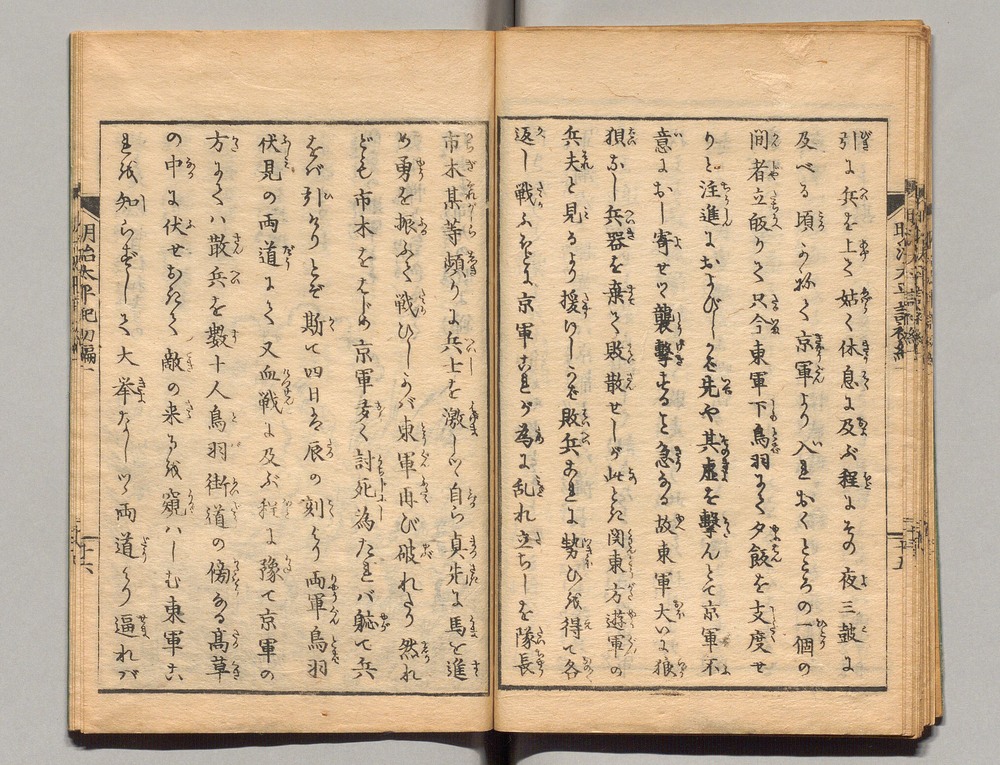 引に兵を上て姑く休息に及ぶ程にその夜三鼓に
及べる頃かねて京軍より入れおくところの一個の
間者立皈りて只今東軍下鳥羽にて夕飯を支度せ
りと注進におよびしかば先や其虚を撃んとて京軍不
意におし寄せて襲撃すると急なる故東軍大いに狼
狽なし兵器を棄て敗散せしが此とき関東方遊軍の
兵夫と見るより援けしかば敗兵これに勢ひを得て各
返し戦ふほどに京軍これが為に乱れ立ちしを隊長
市木某等頻りに兵士を激しつつ自ら貞先に馬を進
め勇を振ふて戦ひしかば東軍再び破れたり然れ
ども市木をはじめ京軍多く討死為たれば軈て兵
をば引けりとぞ斯て四日は辰の刻より両軍鳥羽
伏見の両道にて又血戦に及ぶ程に豫て京軍の
方にては散兵を数十人鳥羽街道の傍なる髙草
の中に伏せおきて敵の来るを窺はしむ東軍これ
を知らずして大挙なしつつ両道より逼れば
明治太平記初編一
十六